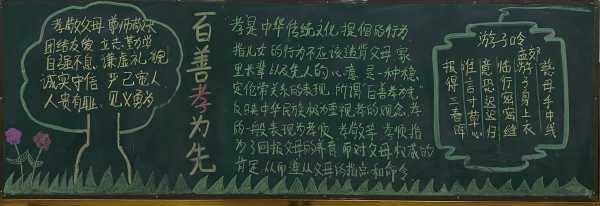 孝敬父母 尊师敬长
团结友爱 立志勤学
自强不息 谦虚礼貌
诚实守信 严己宽人
人贵有耻 见义勇为
百善孝为先
孝是中华传统文化提倡的行为
指儿女的行为不应该违背父母、家
里长辈以及先人的心意，是一种稳
定伦常关系的表现。所谓“百善孝为先”
反映中华民族极为重视孝的观念。孝
的一般表现为孝顺、孝敬等。孝顺指
为了回报父母的养育，而对父母权威的
肯定，从而遵从父母的指点和命令
游子吟
孟郊
慈母手中线
游子身上衣
临行密密缝
意恐迟迟归
谁言寸草心
报得三春晖